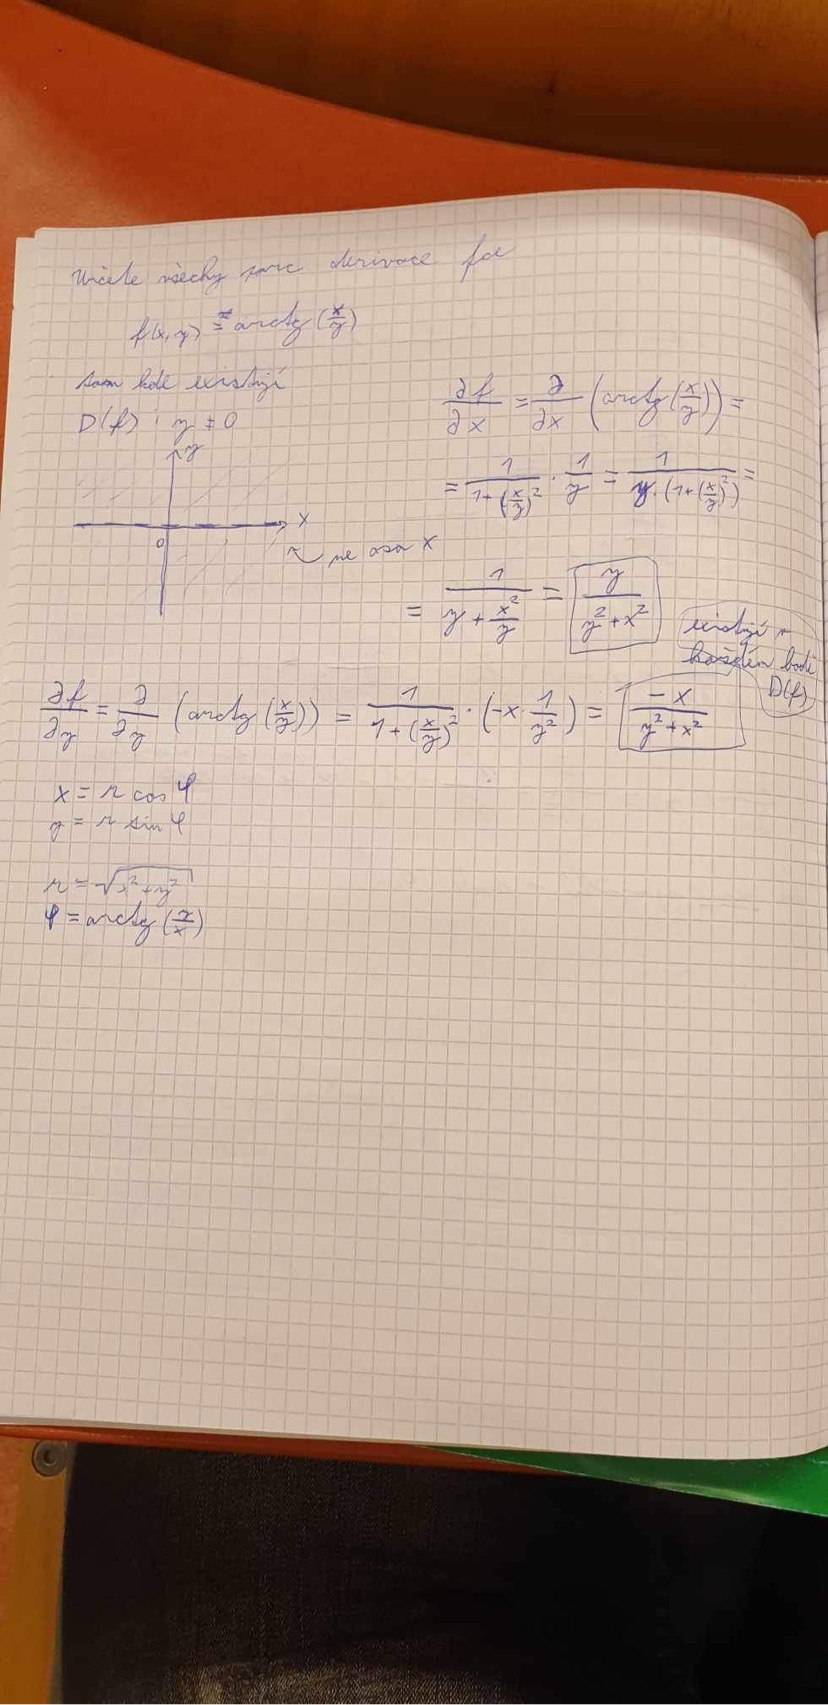 Určete všechy parc derivace fce
f(x,y) = arctg(x/y)
tam kde existují
D(f): y ≠ 0
y
x
0
ne osa x
∂f/∂x = ∂/∂x (arctg(x/y)) =
= 1/(1+(x/y)²) · 1/y = 1/(y·(1+(x/y)²)) =
= 1/(y + x²/y) = y/(y²+x²)
existují v
každém bodě
D(f)
∂f/∂y = ∂/∂y (arctg(x/y)) = 1/(1+(x/y)²) · (-x · 1/y²) = -x/(y²+x²)
x = r cos φ
y = r sin φ
r = √(x²+y²)
φ = arctg(y/x)